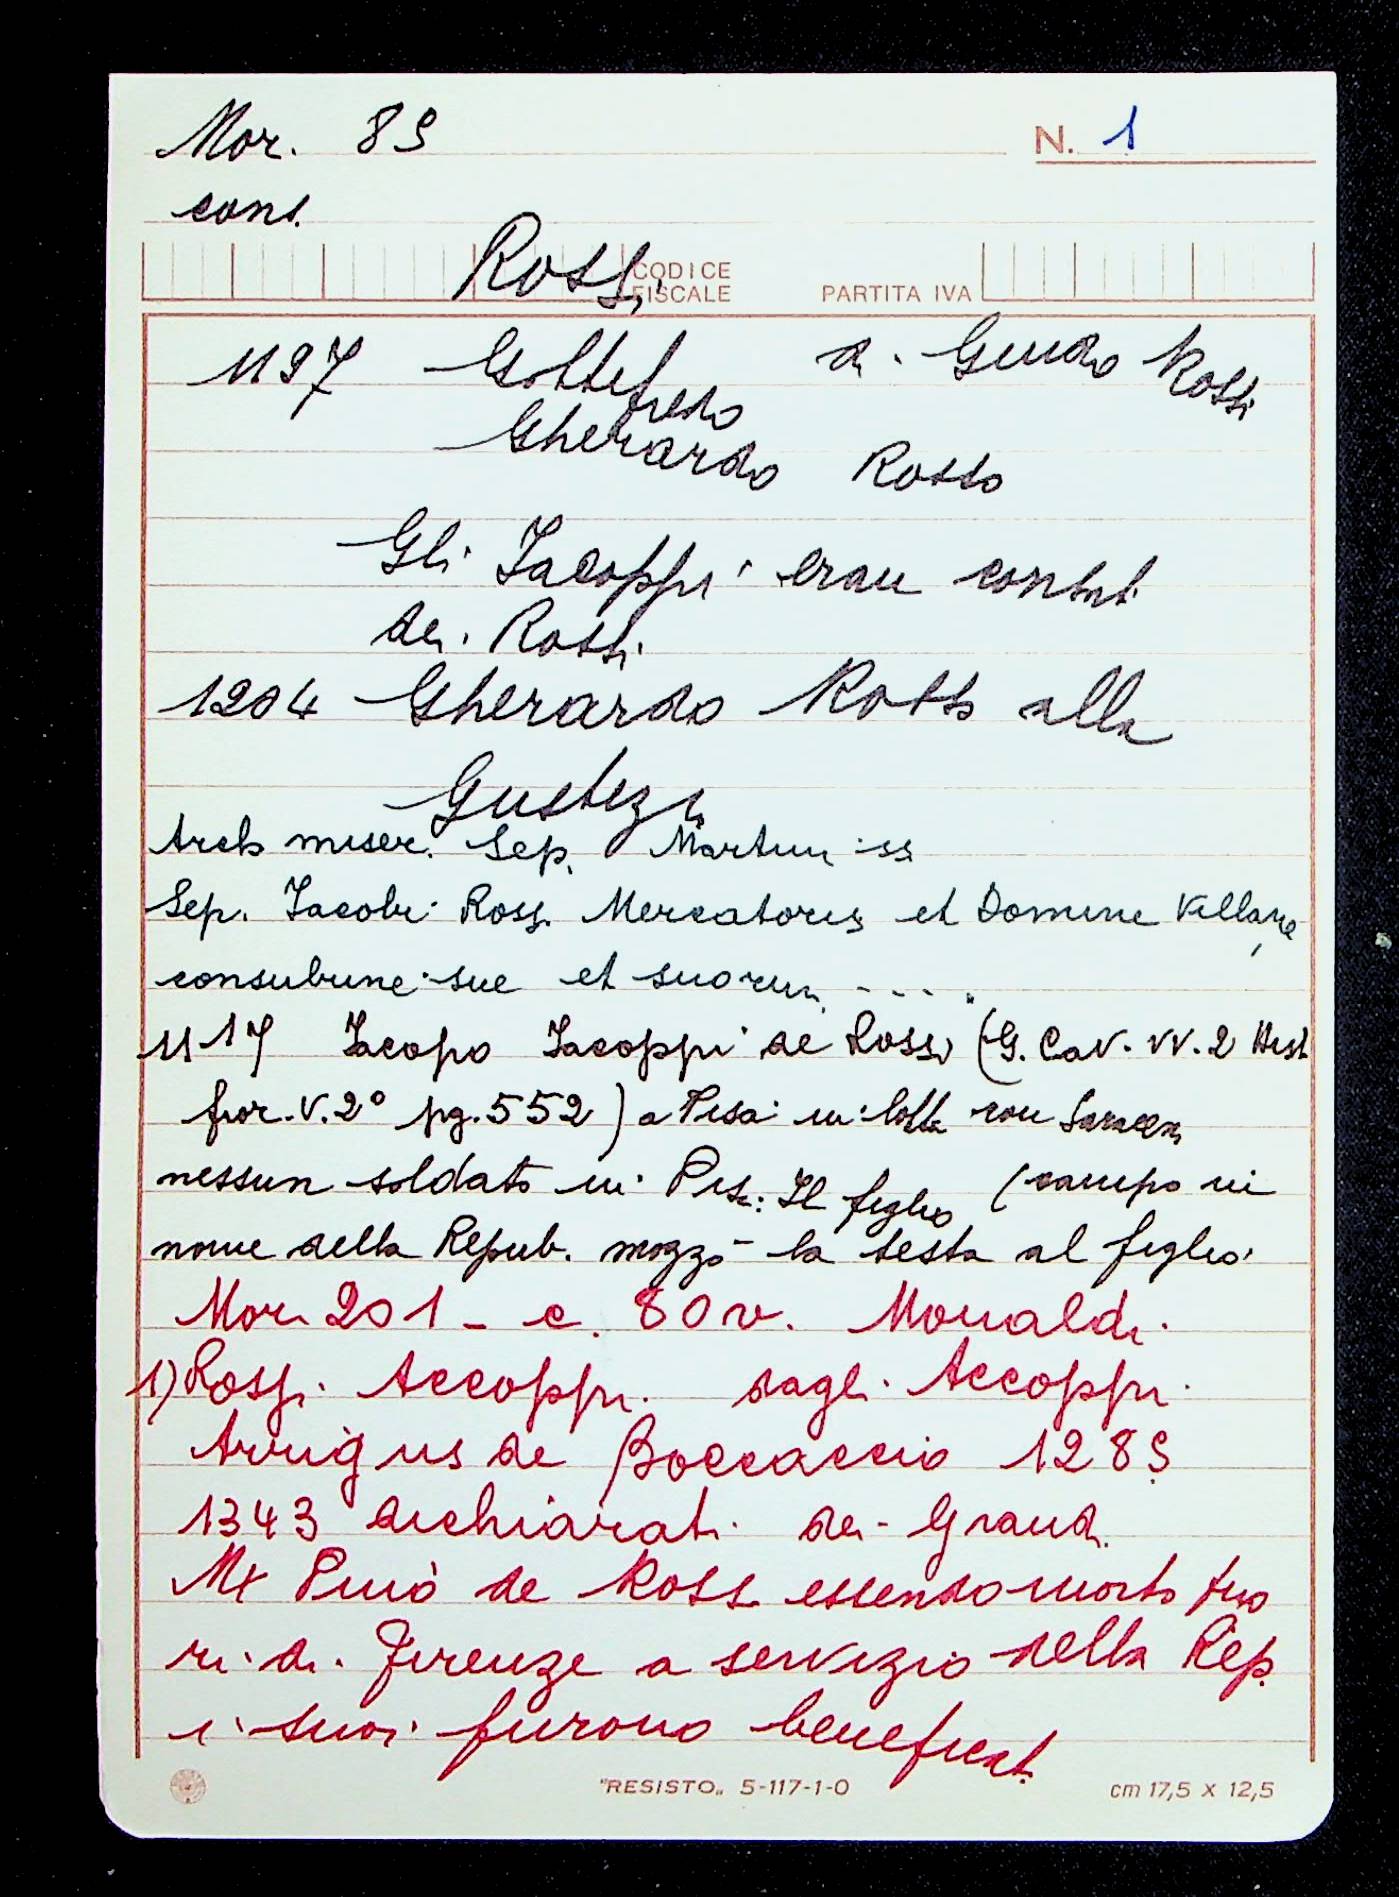 Mor. 89
N. 1
cons.
Rossi
CODICE FISCALE
PARTITA IVA
1197 Gottefredo di Guido Rossi
Gherardo Rosso
Gli Iacoppi eran consorti
dei Rossi
1204 Gherardo Rosso alla
Giustizi
Arch miser. Sep. Martin
Sep. Jacobi Rossi Mercatoris et Domine Villane
et suorum ---"
1117 Iacopo Iacoppi de Rossi (G. Cav. VV. 2 Hist
fior. V. 2° pg. 552) a Pisa in lotta con Saracen
nessun soldato in Pisa: Il figlio (campo in
nome della Repub. mozzò la testa al figlio
Mor. 201 - c. 80 v. Monaldi
1) Rossi Accoppi dagli Accoppi
Arrigus de Boccaccio 1289
1343 dichiarati dei Grandi
Mr Pino de Rossi essendo morto fuo
ri di Firenze a servizio della Rep.
i suoi furono beneficati
"RESISTO" 5-117-1-0
cm 17,5 x 12,5